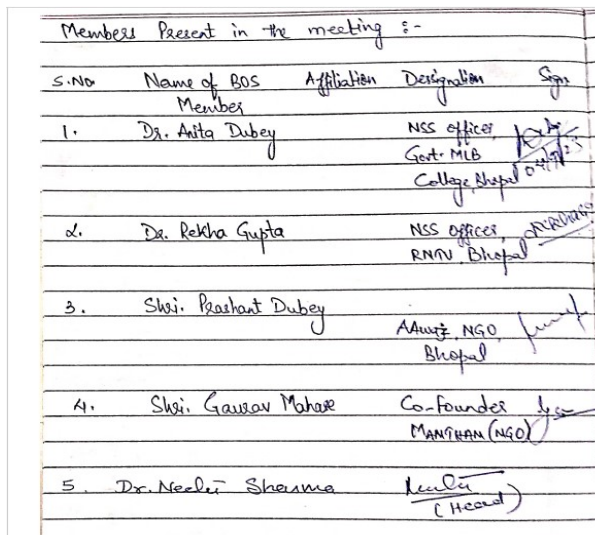 Members Present in the meeting :-
S.No Name of BOS Affiliation Designation Sign
Member
1. Dr. Anita Dubey NSS officer,
Govt. MLB
College, Bhopal
2. Dr. Rekha Gupta NSS officer,
RNTU, Bhopal
3. Shri. Prashant Dubey
NGO,
Bhopal
4. Shri. Gaurav Mahase Co-founder
MANTHAN (NGO)
5. Dr. Neelu Sharma
(Head)